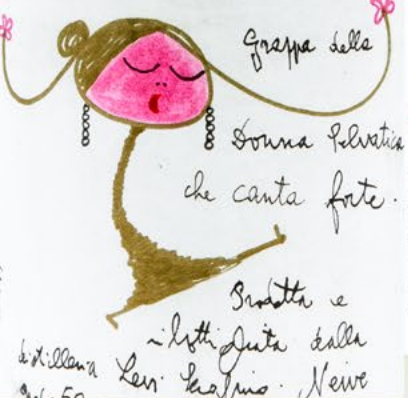 Grappa della
Donna Selvatica
che canta forte.
Prodotta e
imbottigliata dalla
distilleria Levi Serafino. Neive